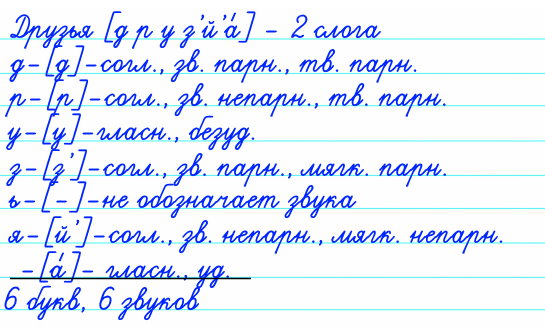 Друзья [д р у з'й'á] – 2 слога
д–[д]–согл., зв. парн., тв. парн.
р–[р]–согл., зв. непарн., тв. парн.
у–[у]–гласн., безуд.
з–[з']–согл., зв. парн., мягк. парн.
ь–[–]–не обозначает звука
я–[й']–согл., зв. непарн., мягк. непарн.
–[á]– гласн., уд.
6 букв, 6 звуков